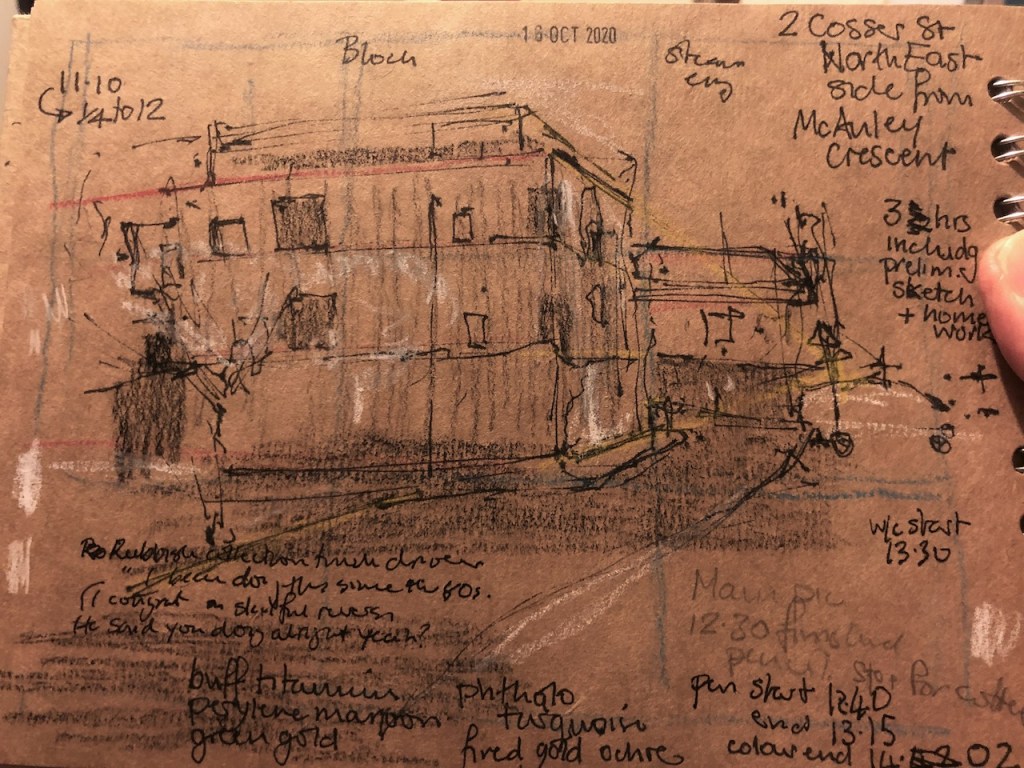 16 OCT 2020
Block
steam
eng
2 Cosser St
North East
side from
McAuley
Crescent
11.10
1/4 to 12
3 hrs
includg
prelims
sketch
+ home
work
w/c start
13.30
Rubbish collection truck driver
"I been doing this since the 80s.
(I congrat on skilful revers
He said you doing alright yeah?
Main pic
12.30 finished
pencil stop for coffee
buff titanium
perylene maroon
green gold
phthalo
turquoise
fired gold ochre
pen start 12.40
end 13.15
colour end 14. 02